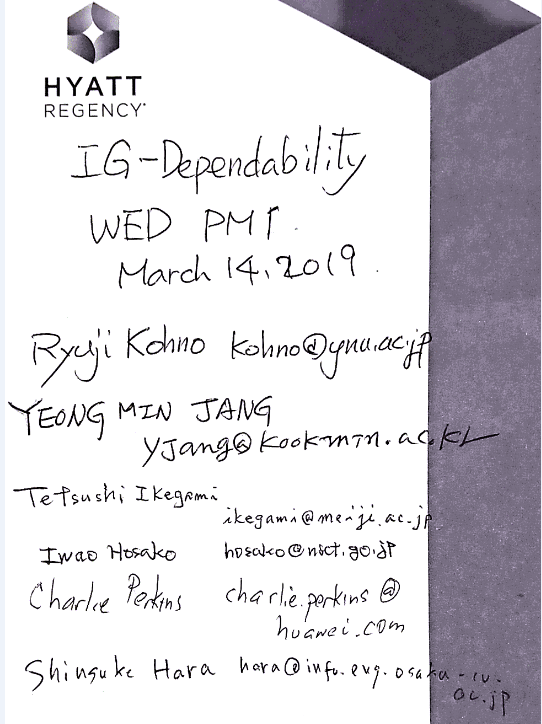 HYATT
REGENCY
IG-Dependability
WED PM1
March 14, 2019
Ryuji Kohno kohno@ynu.ac.jp
YEONG MIN JANG
yjang@kookmin.ac.kr
Tetsushi Ikegami
ikegami@meiji.ac.jp
Iwao Hosako hosako@nict.go.jp
Charlie Perkins charlie.perkins@
huawei.com
Shinsuke Hara hara@info.eng.osaka-cu.
ac.jp